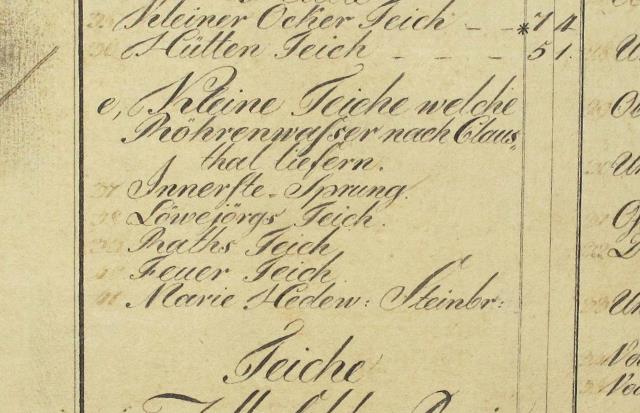 Kleiner Ocker Teich - - * 7 4
Hütten Teich - - - 5 1.
e, Kleine Teiche welche
Röhrenwasser nach Claus„
thal liefern.
Innerste-Sprung.
Löwejörgs Teich.
Raths Teich
Feuer Teich
Marie Hedew: Steinbr:
Teiche